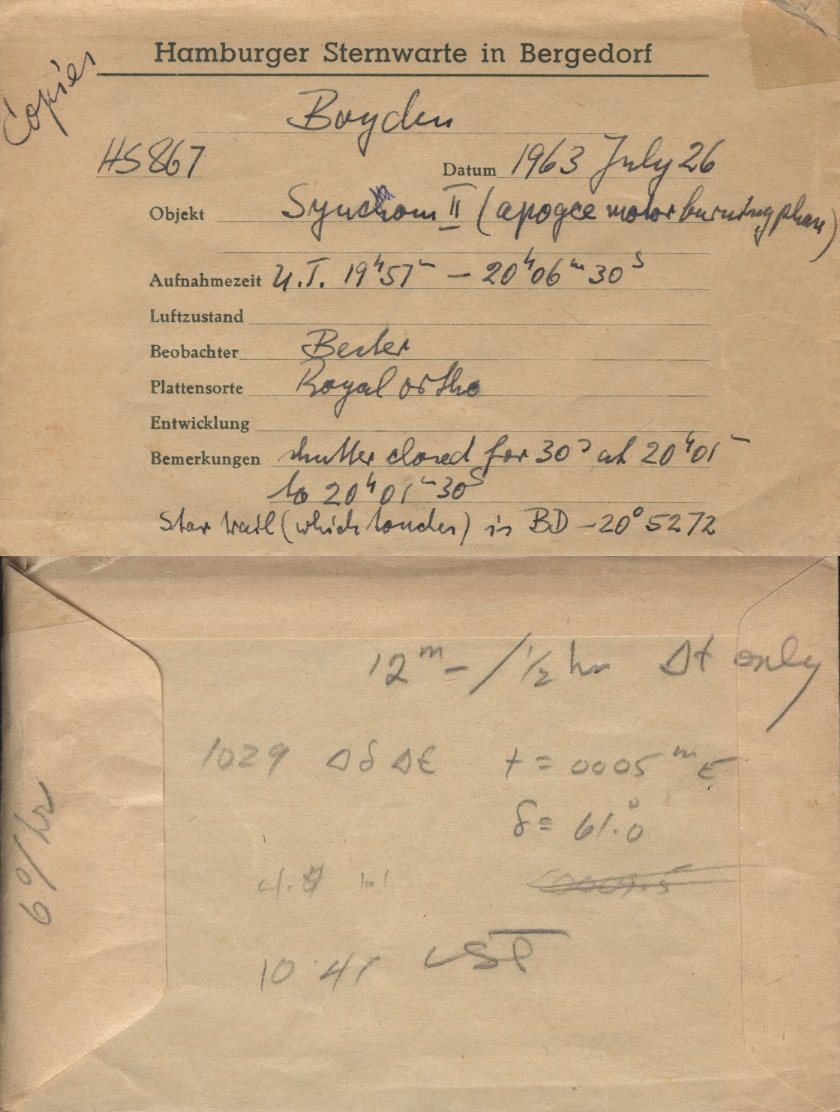 Hamburger Sternwarte in Bergedorf
Copies
Boyden
HS867
Datum 1963 July 26
Objekt Synchom II (apogee motor burning phase)
Aufnahmezeit U.T. 19h57m – 20h06m30s
Luftzustand
Beobachter Bester
Plattensorte Royal ortho
Entwicklung
Bemerkungen shutter closed for 30s at 20h01m
to 20h01m30s
Star trail (which touches) is BD –20°5272
12m – / ½ hr Δt only
1029 Δδ Δt t = 0005m E
δ = 61.°0
6°/hr
10 41